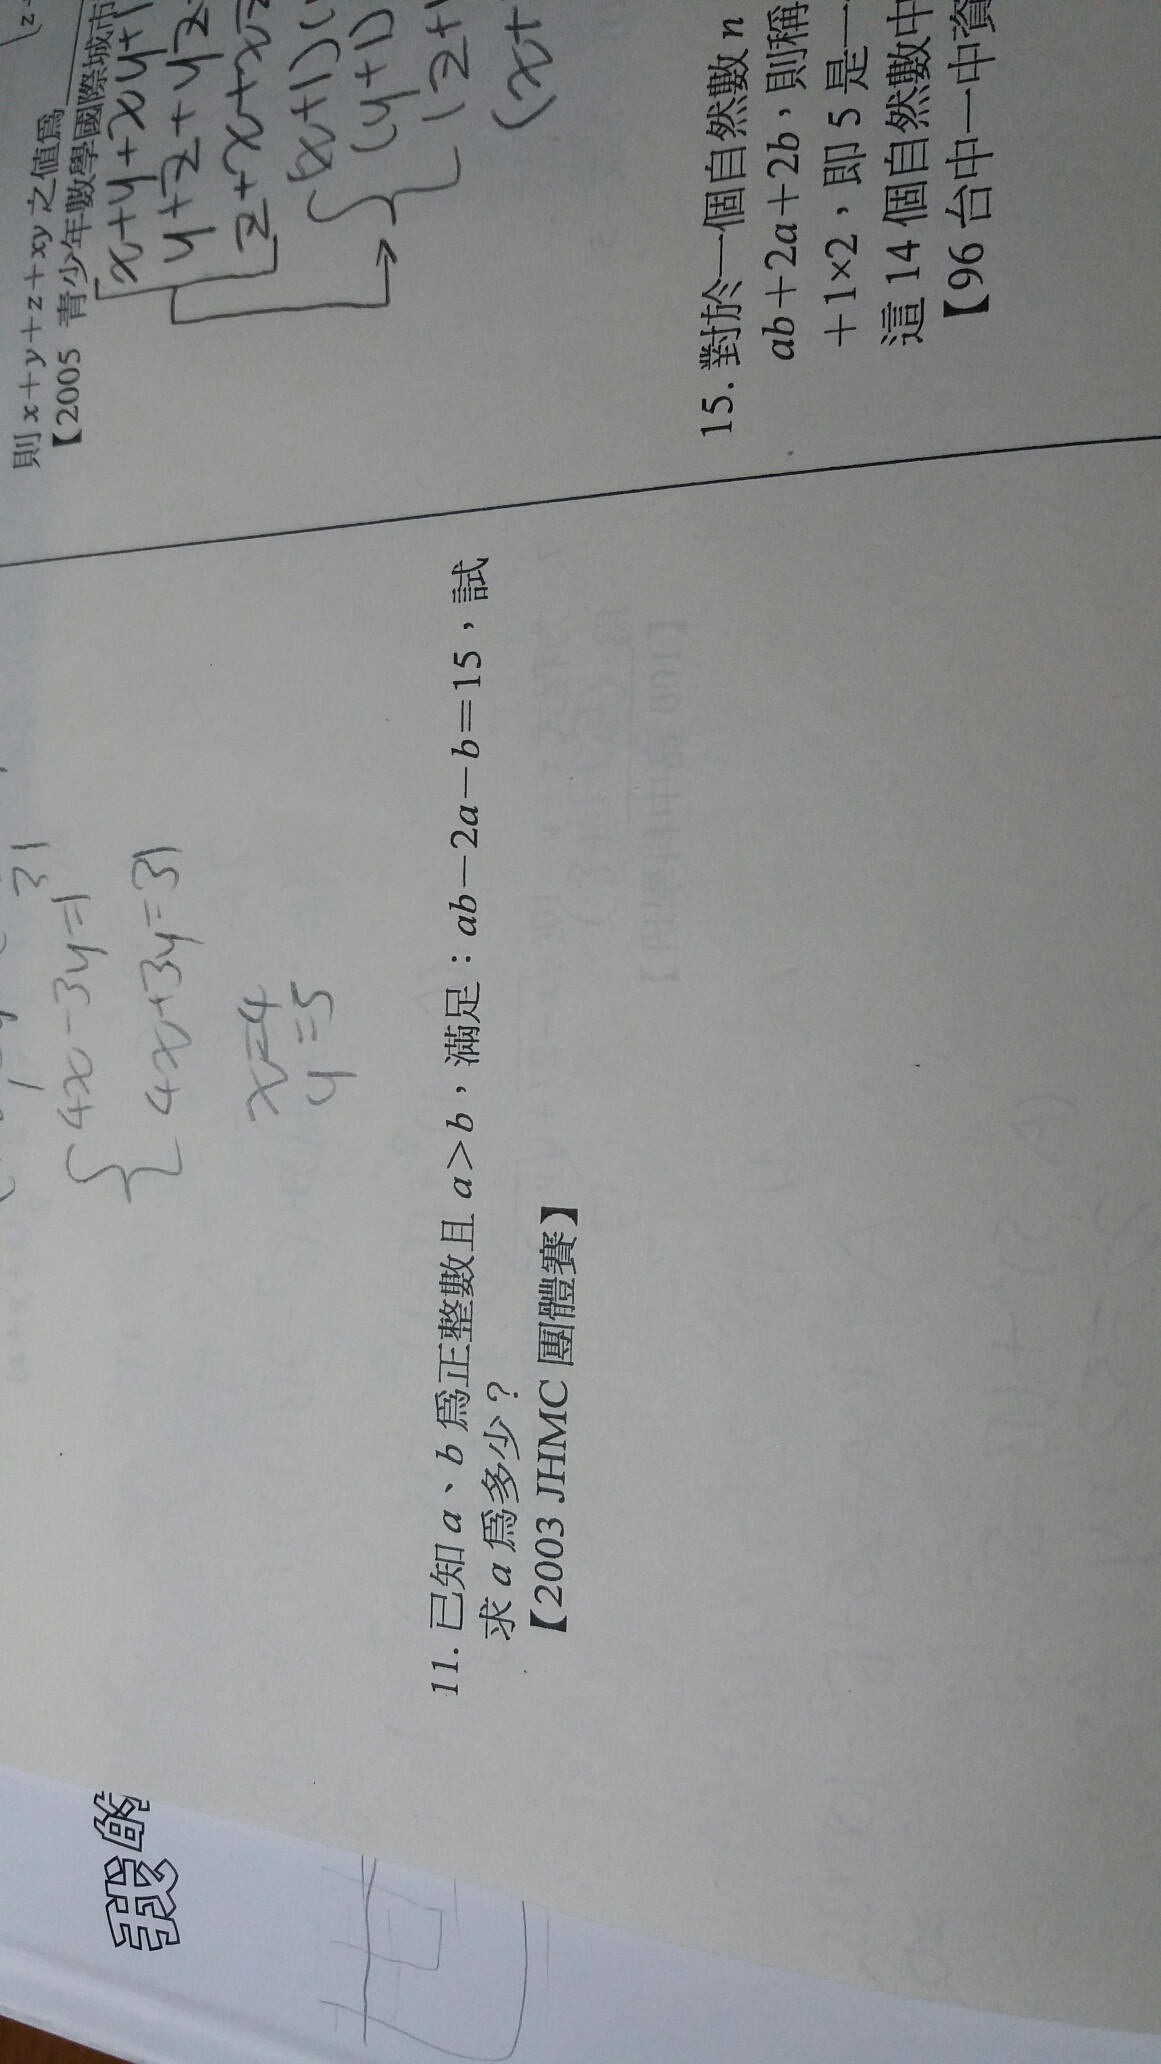 {4x-3y=1
{4x+3y=31
x=4
y=5
11. 已知 a、b 爲正整數且 a>b，滿足：ab-2a-b=15，試
求 a 爲多少？
【2003 JHMC 團體賽】
則 x+y+z+xy 之值爲
【2005 青少年數學國際城市
x+y+xy+1
y+z+yz
z+x+xz
(x+1)(
(y+1)
(z+1
(x+
15. 對於一個自然數 n
ab+2a+2b，則稱
+1×2，即 5 是一
這 14 個自然數中
【96 台中一中資
我的